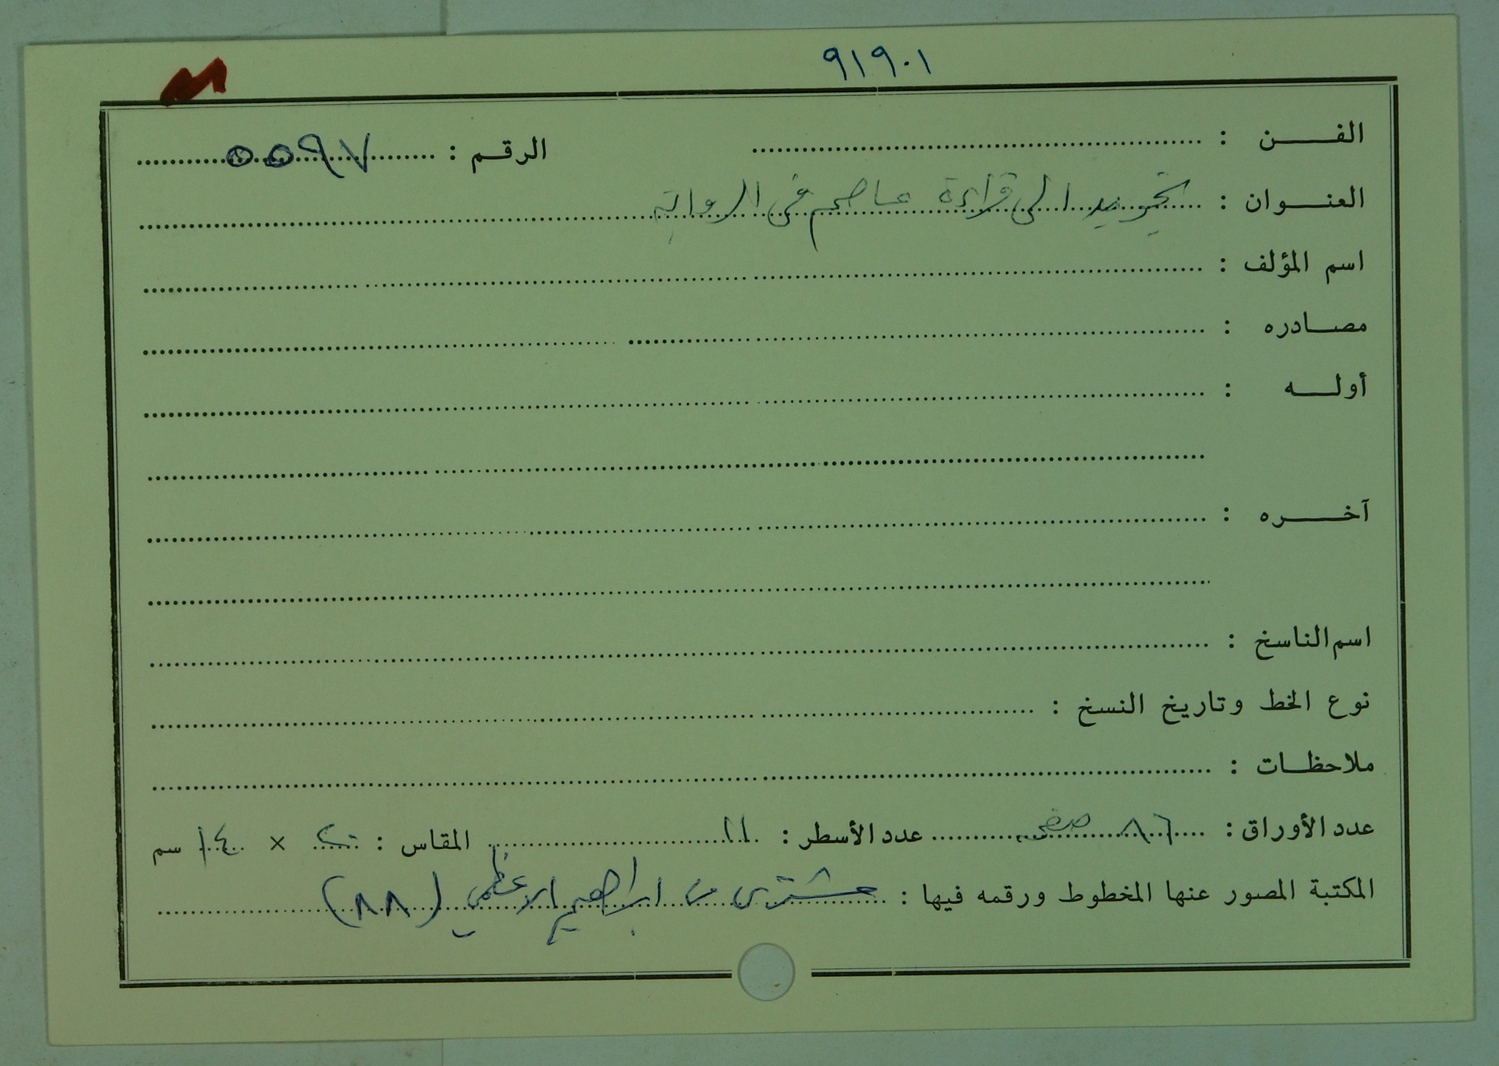 ٩١٩٠١
الفن : الرقم : ٥٥٩٧
العنوان : تجويد الى قراءة عاصم فى الرواية
اسم المؤلف :
مصادره :
أوله :
آخره :
اسم الناسخ :
نوع الخط وتاريخ النسخ :
ملاحظات :
عدد الأوراق : ٨٦ صفحة عدد الأسطر : ١١ المقاس : ٢٠ × ١٤ سم
المكتبة المصور عنها المخطوط ورقمه فيها : مشترى من ابراهيم الاعظمي (٨٨)